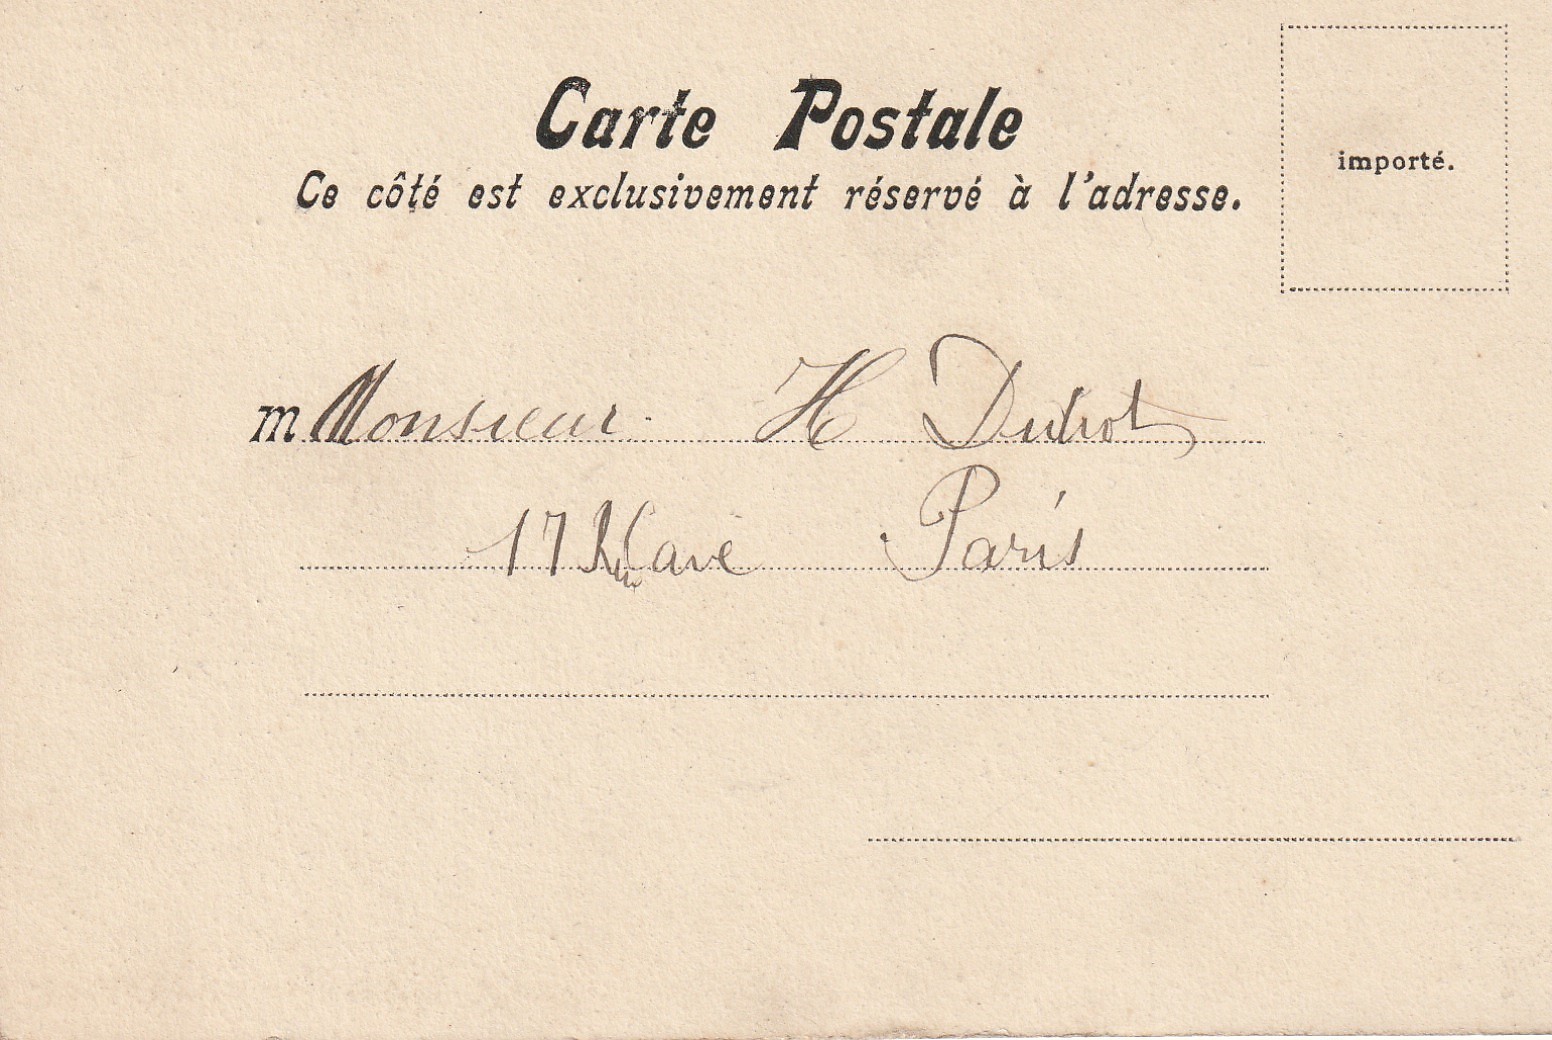 Carte Postale
Ce côté est exclusivement réservé à l'adresse.
importé.
m Monsieur H
17 Rue Cavé Paris